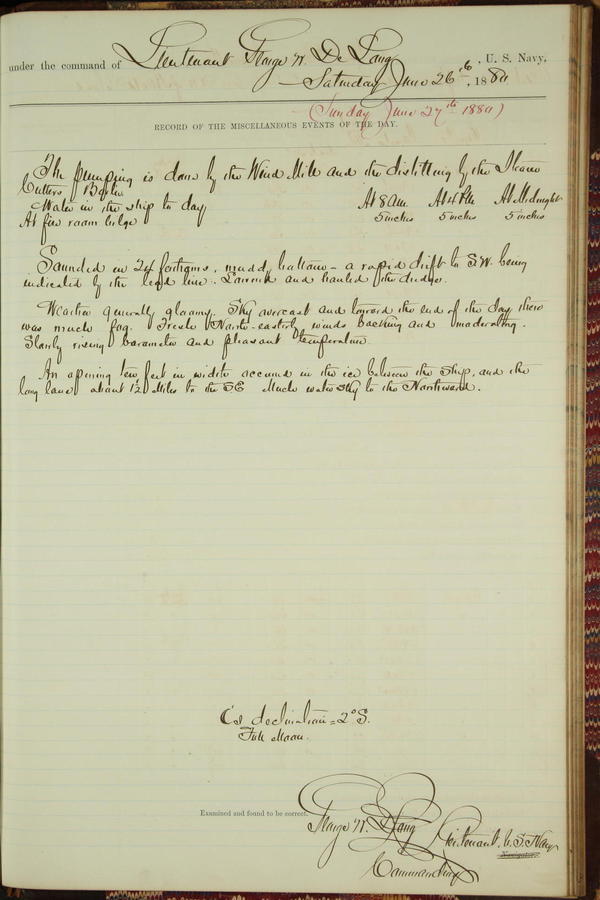 under the command of Lieutenant George W. De Long, U. S. Navy.
Saturday June 26th, 1880
(Sunday June 27th 1880)
RECORD OF THE MISCELLANEOUS EVENTS OF THE DAY.
The pumping is done by the Wind Mill and the distilling by the Steam
Cutters Boiler
Water in the ship to day At 8 AM At 4 PM At Midnight
At fire room bilge 5 inches 5 inches 5 inches
Sounded in 24 fathoms, muddy bottom - a rapid drift to S.W. being
indicated by the lead line. Lowered and hauled the dredge.
Weather generally gloomy. Sky overcast and toward the end of the day there
was much fog. Fresh North-easterly winds backing and moderating.
Slowly rising barometer and pleasant temperature
An opening ten feet in width occurred in the ice between the ship, and the
long lead about 1/2 miles to the SE Much water sky to the Northward.
☾'s declination = 2° S.
Full Moon.
Examined and found to be correct.
George W. De Long Lieutenant, U.S. Navy
Navigator.
Commanding